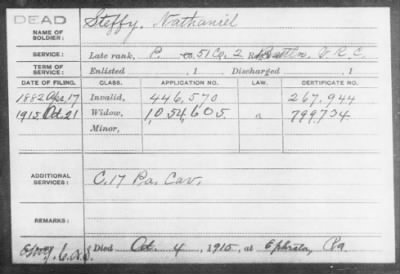 DEAD
NAME OF SOLDIER: Steffy, Nathaniel
SERVICE: Late rank, P. Co. 51 Co., 2 Batt'n V. R. C.
TERM OF SERVICE: Enlisted , 1 . Discharged , 1 .
DATE OF FILING. CLASS. APPLICATION NO. LAW. CERTIFICATE NO.
1882 Apr. 17 Invalid, 446,570 267,944
1915 Oct 21 Widow, 1,054,605 799,734
Minor,
ADDITIONAL SERVICES: C. 17 Pa. Cav.
REMARKS:
Died Oct. 4, 1915, at Ephrata, Pa